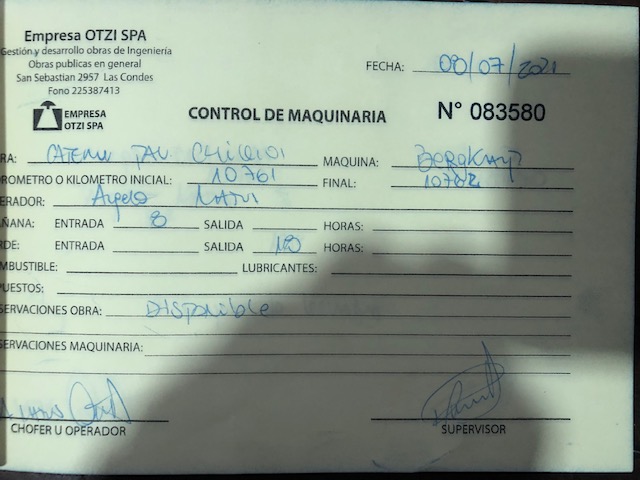 Empresa OTZI SPA
Gestión y desarrollo obras de Ingeniería
Obras publicas en general
San Sebastian 2957 Las Condes
Fono 225387413
FECHA: 09/07/2021
EMPRESA
OTZI SPA
CONTROL DE MAQUINARIA N° 083580
RA: MAQUINA:
ROMETRO O KILOMETRO INICIAL: 10761 FINAL:
ERADOR:
ÑANA: ENTRADA 8 SALIDA HORAS:
RDE: ENTRADA SALIDA 18 HORAS:
MBUSTIBLE: LUBRICANTES:
PUESTOS:
SERVACIONES OBRA: Disponible
SERVACIONES MAQUINARIA:
CHOFER U OPERADOR SUPERVISOR